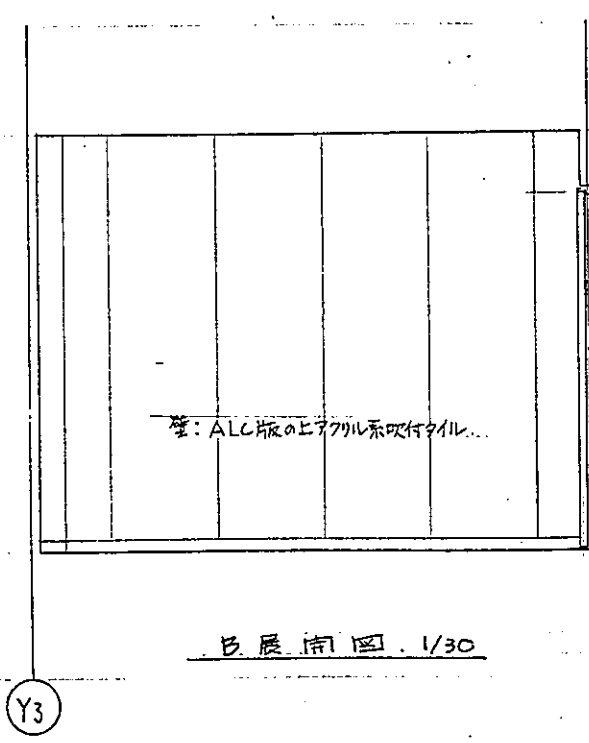 壁：ALC版の上アクリル系吹付タイル...
B 展開図. 1/30
Y3